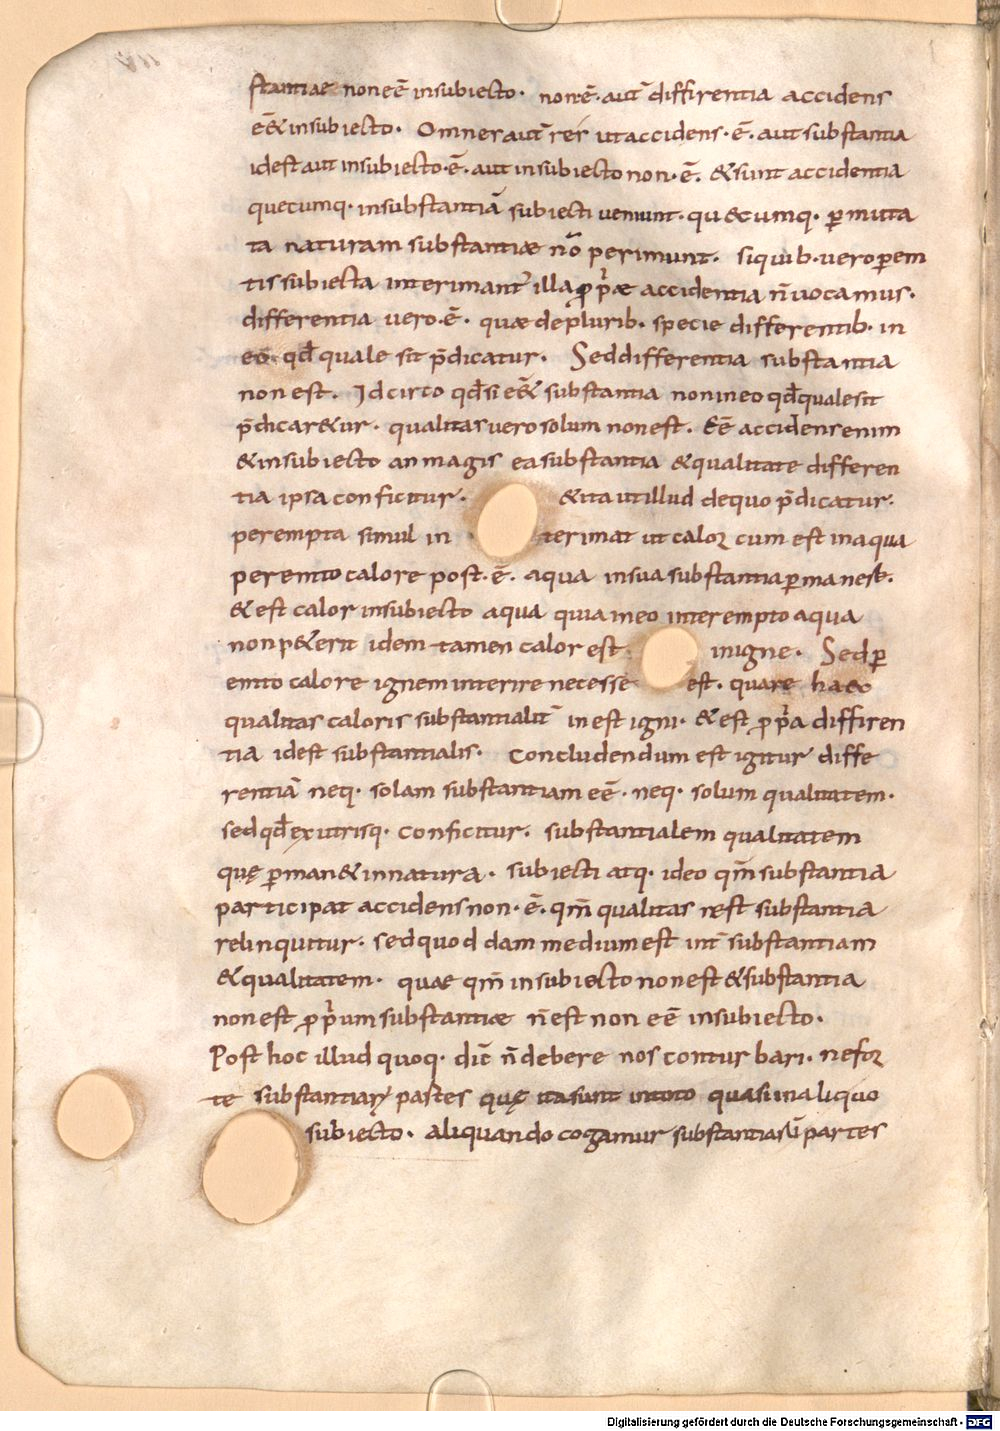 stantiae non eē insubiecto. non ē. aut̄ diffirentia accidens
ēē & insubiecto. Omner aut̄ rer ut accidens. ē. aut substantia
idest aut insubiecto. ē. aut insubiecto non. ē. & sunt accidentia
quecumq. insubstantiā subiecti ueniunt. qu&cumq. ꝑmuta
ta naturam substantiæ nō perimunt. siquib. uero ꝑem
tis subiecta interimant̄ illa ꝓpꝛæ accidentia n̄ uocamus.
differentia uero. ē. quæ deplurib. specie differentib. in
eo. qđ quale sit p̄dicatur. Sed differentia substantia
non est. Idcirco qđ si eēt substantia non ineo qđ quale sit
p̄dicar&ur. qualitas uero solum non est. Eē accidens enim
& insubiecto an magis ea substantia & qualitate differen
tia ipsa conficitur. & ita ut illud dequo p̄dicatur.
perempta simul in terimat ut calor cum est in aqua
perempto calore post. ē. aqua insua substantia ꝑmanes̄.
& est calor insubiecto aqua quia ineo interempto aqua
non p&erit idem tamen calor est inigne. Sed ꝑ
empto calore ignem interire necesse est. quare haec
qualitas caloris substantialit̄ in est igni. & est ꝓpꝛa diffiren
tia idest substantialis. Concludendum est igitur diffe
rentiā neq. solam substantiam eē. neq. solum qualitatem.
sed qđ ex utrisq. conficitur. substantialem qualitatem
quę ꝑman& innatura. subiecti atq. ideo qm̄ substantia
participat accidens non. ē. qm̄ qualitas ɴest substantia
relinquitur. sed quod dam medium est int̄ substantiam
& qualitatem. quae qm̄ insubiecto non est & substantia
non est ꝓpꝛum substantiæ n̄ est non eē insubiecto.
Post hoc illud quoq. dic̄ n̄ debere nos conturbari. nefor
te substantiaꝝ partes quę ita sunt intoto quasi in aliquo
subiecto. aliquando cogamur substantiarū partes
Digitalisierung gefördert durch die Deutsche Forschungsgemeinschaft - DFG